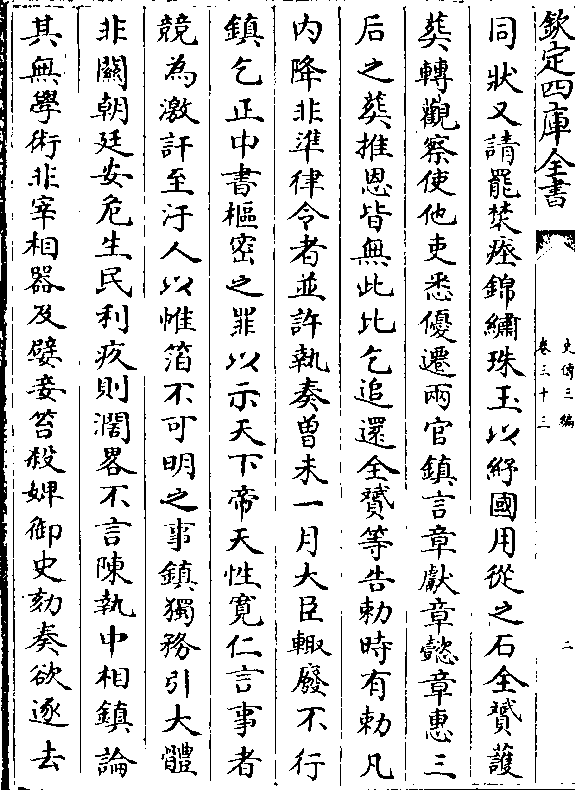 欽定四庫全書
史傳三編
卷三十三
二
同狀又請罷焚瘞錦繡珠玉以紓國用從之石全贇護
葬轉觀察使他吏悉優遷兩官鎮言章獻章懿章惠三
后之葬推恩皆無此比乞追還全贇等告勅時有勅凡
内降非準律令者並許執奏曽未一月大臣輙廢不行
鎮乞正中書樞密之罪以示天下帝天性寛仁言事者
競為激訐至汙人以帷箔不可明之事鎮獨務引大體
非關朝廷安危生民利疚則濶畧不言陳執中相鎮論
其無學術非宰相器及嬖妾笞殺婢御史劾奏欲逐去